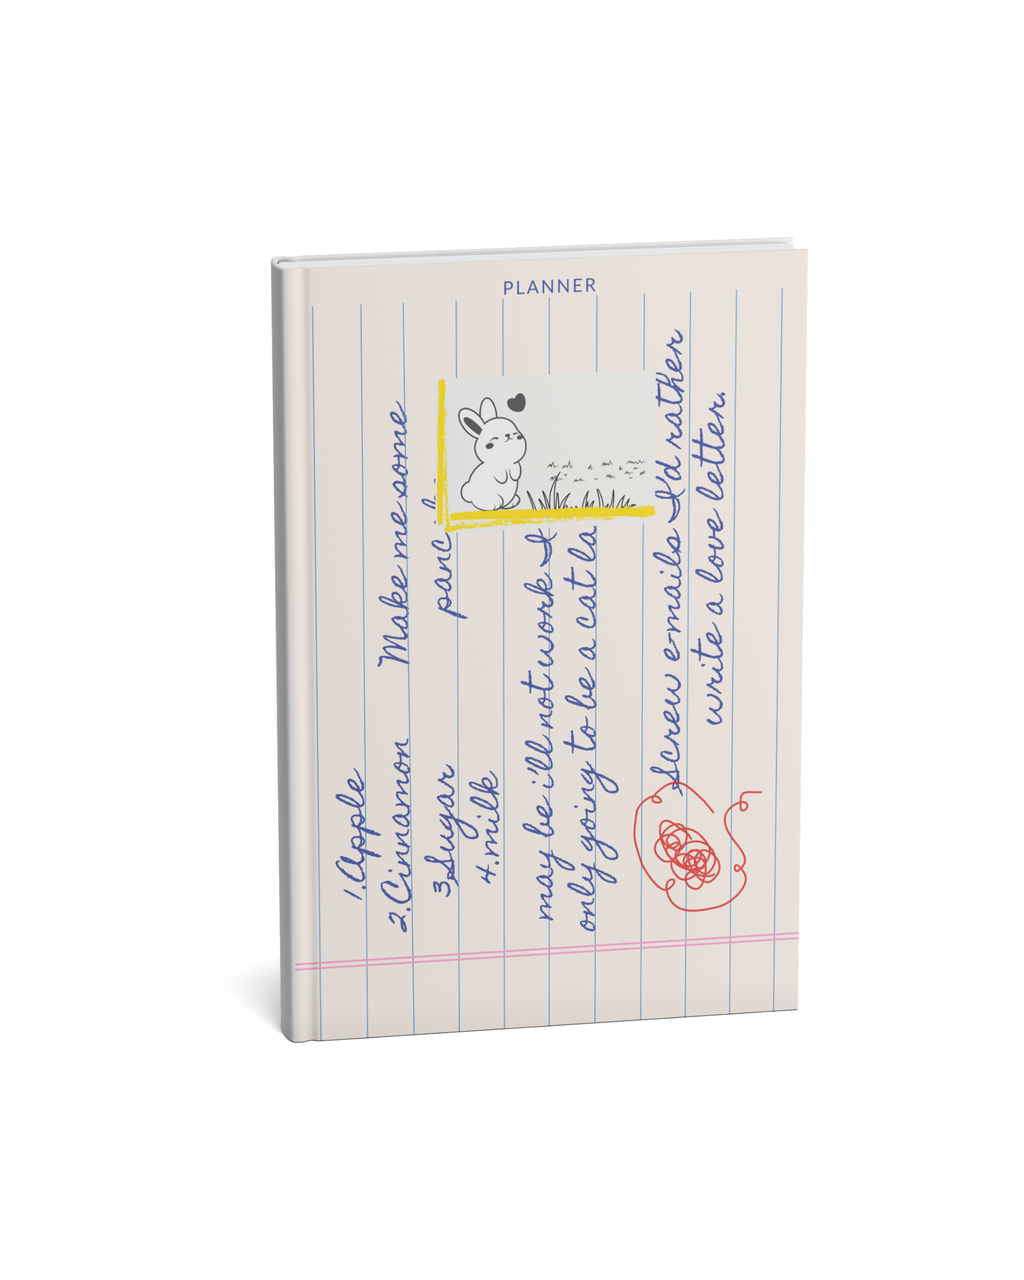 PLANNER
1. Apple
2. Cinnamon Make me some
3. Sugar panc
4. milk
may be i'll not work I
only going to be a cat la
Screw e-mails I'd rather
write a love letter.